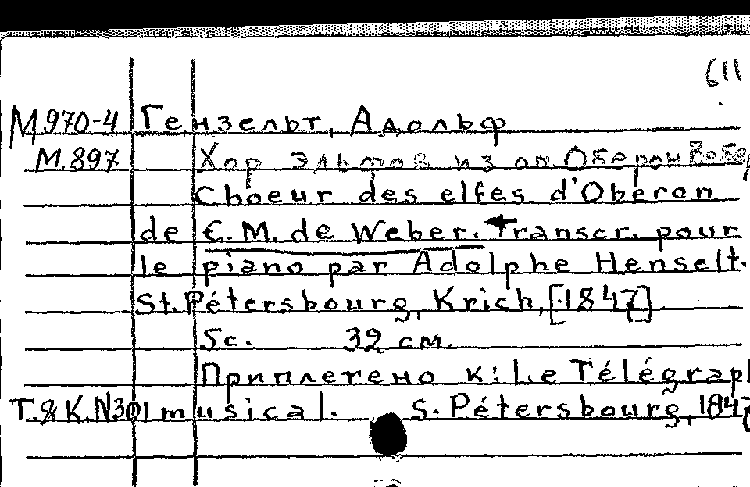 611
М970-4 Гензельт, Адольф
М.897 Хор эльфов из оп. Оберон
Choeur des elfes d'Oberon
de C. M. de Weber. Transcr. pour
le piano par Adolphe Henselt.
St. Pétersbourg, Krich, [1847]
5с. 32 см.
Приплетено к: Le Télégraph
T.&K.N301 musical. S. Pétersbourg, 1847